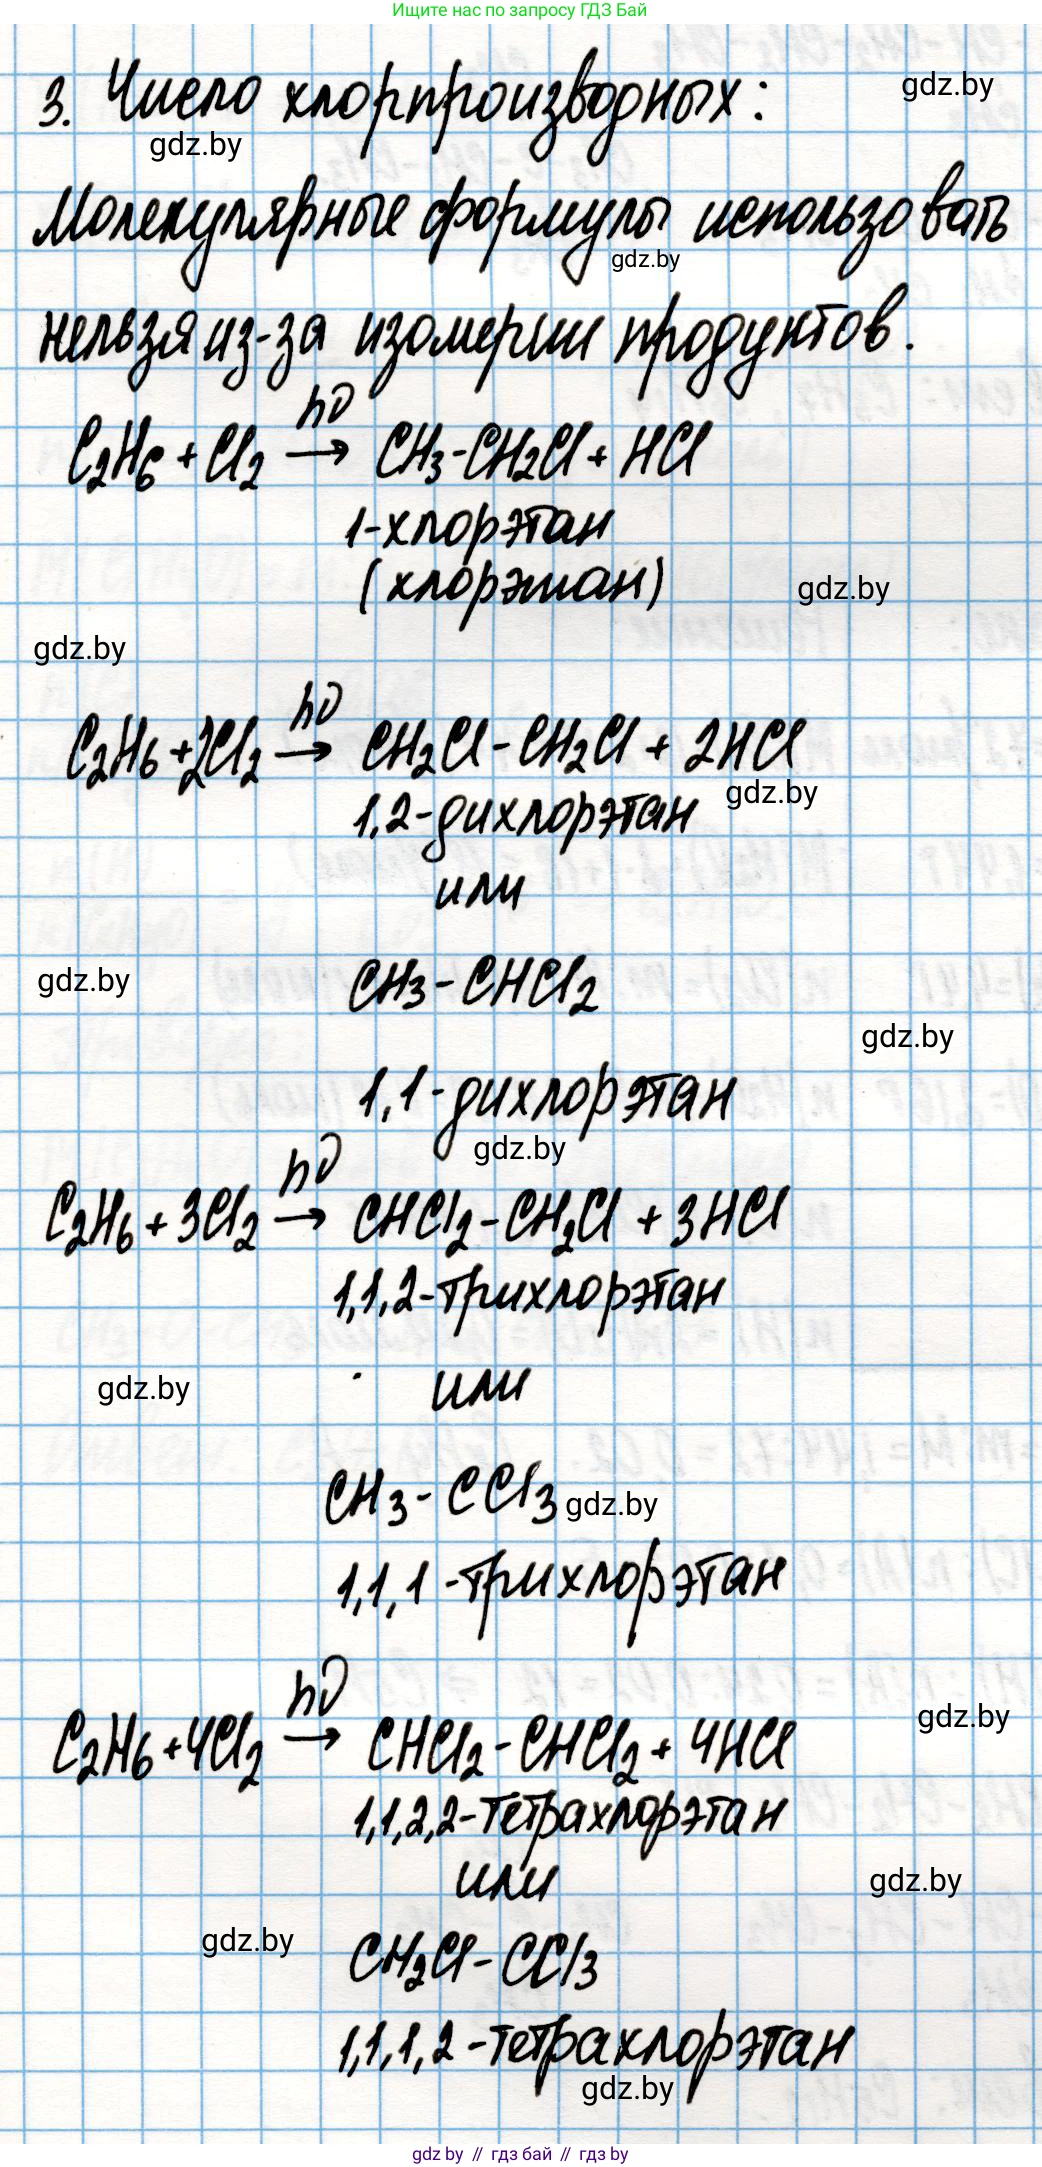 Ищите нас по запросу ГДЗ Бай
3. Число хлорпроизводных:
gdz.by
gdz.by
Молекулярные формулы использовать
gdz.by
нельзя из-за изомерии продуктов.
hυ
C₂H₆ + Cl₂ → CH₃-CH₂Cl + HCl
1-хлорэтан
(хлорэтан)
gdz.by
gdz.by
hυ
C₂H₆ + 2Cl₂ → CH₂Cl - CH₂Cl + 2HCl
gdz.by
1,2-дихлорэтан
или
gdz.by
CH₃ - CHCl₂
gdz.by
1,1-дихлорэтан
gdz.by
hυ
C₂H₆ + 3Cl₂ → CHCl₂ - CH₂Cl + 3HCl
1,1,2-трихлорэтан
gdz.by
или
CH₃ - CCl₃
gdz.by
1,1,1-трихлорэтан
hυ
gdz.by
C₂H₆ + 4Cl₂ → CHCl₂ - CHCl₂ + 4HCl
1,1,2,2-тетрахлорэтан
или
gdz.by
gdz.by
CH₂Cl - CCl₃
1,1,1,2-тетрахлорэтан
gdz.by
gdz by // гдз бай // гдз by